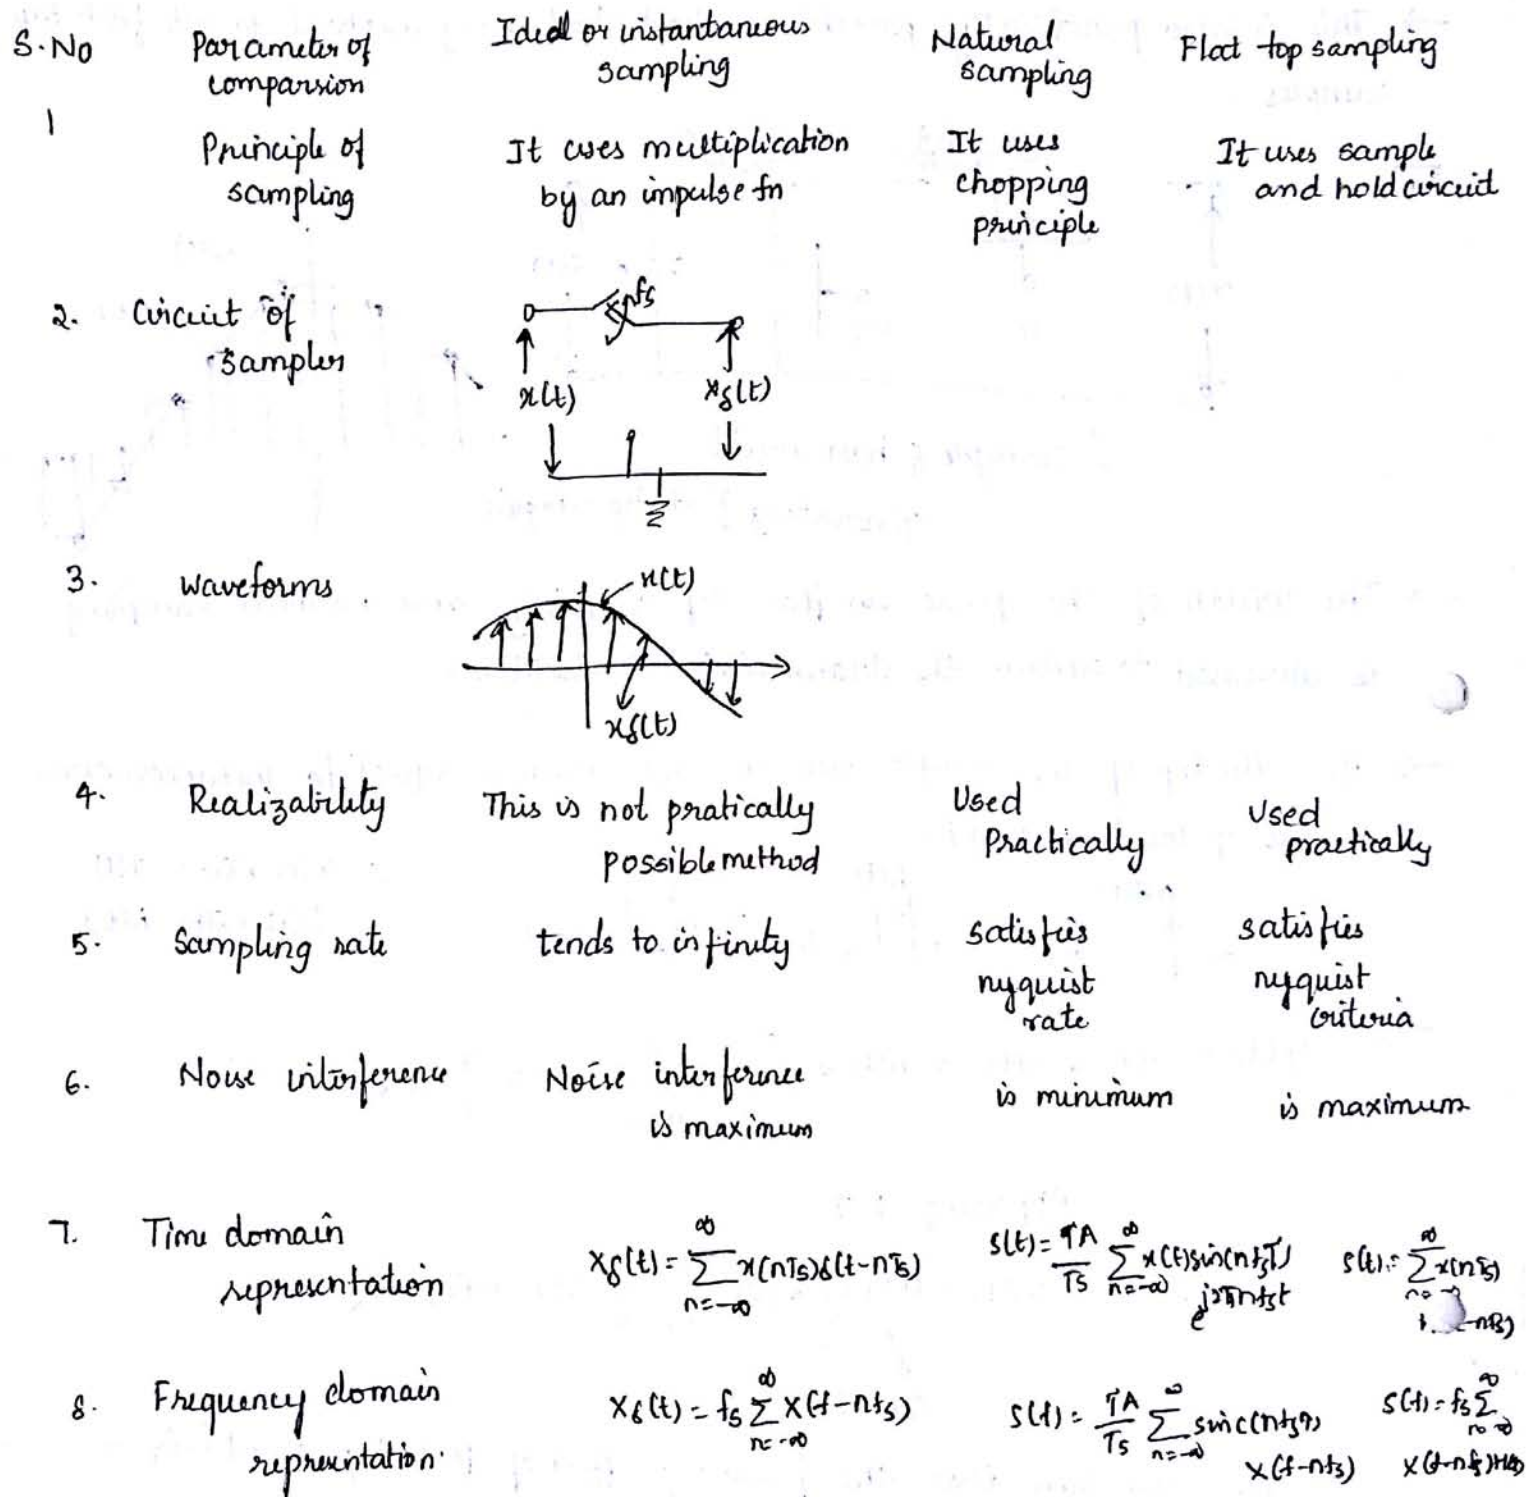 S.No Parameter of comparsion Ideal or instantaneous sampling Natural sampling Flat top sampling
1 Principle of sampling It uses multiplication by an impulse fn It uses chopping principle It uses sample and hold circuit
2. Circuit of samplers
fs
x(t) xδ(t)
3. waveforms
x(t)
xδ(t)
4. Realizability This is not pratically possible method Used Practically Used practically
5. Sampling rate tends to infinity satisfies nyquist rate satisfies nyquist criteria
6. Noise interference Noise interference is maximum is minimum is maximum
7. Time domain representation xδ(t) = ∞ ∑ n=-∞ x(nTs)δ(t-nTs) s(t) = τA/Ts ∞ ∑ n=-∞ x(t) sin(nfsT) e^j2πnfst s(t) = ∞ ∑ x(nTs) -nTs)
8. Frequency domain representation. Xδ(t) = fs ∞ ∑ n=-∞ X(f-nfs) S(f) = τA/Ts ∞ ∑ n=-∞ sinc(nfsτ) X(f-nfs) S(f) = fs ∞ ∑ X(f-nfs)H(f)